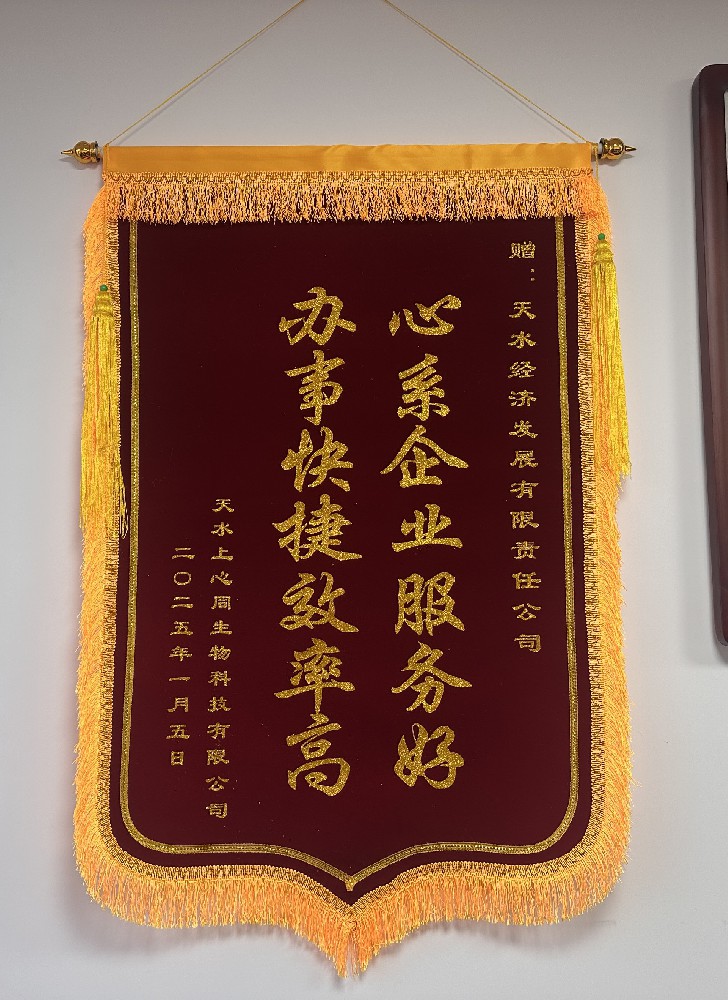 赠：天水经济发展有限责任公司
心系企业服务好
办事快捷效率高
天水上心周生物科技有限公司
二〇二五年一月五日